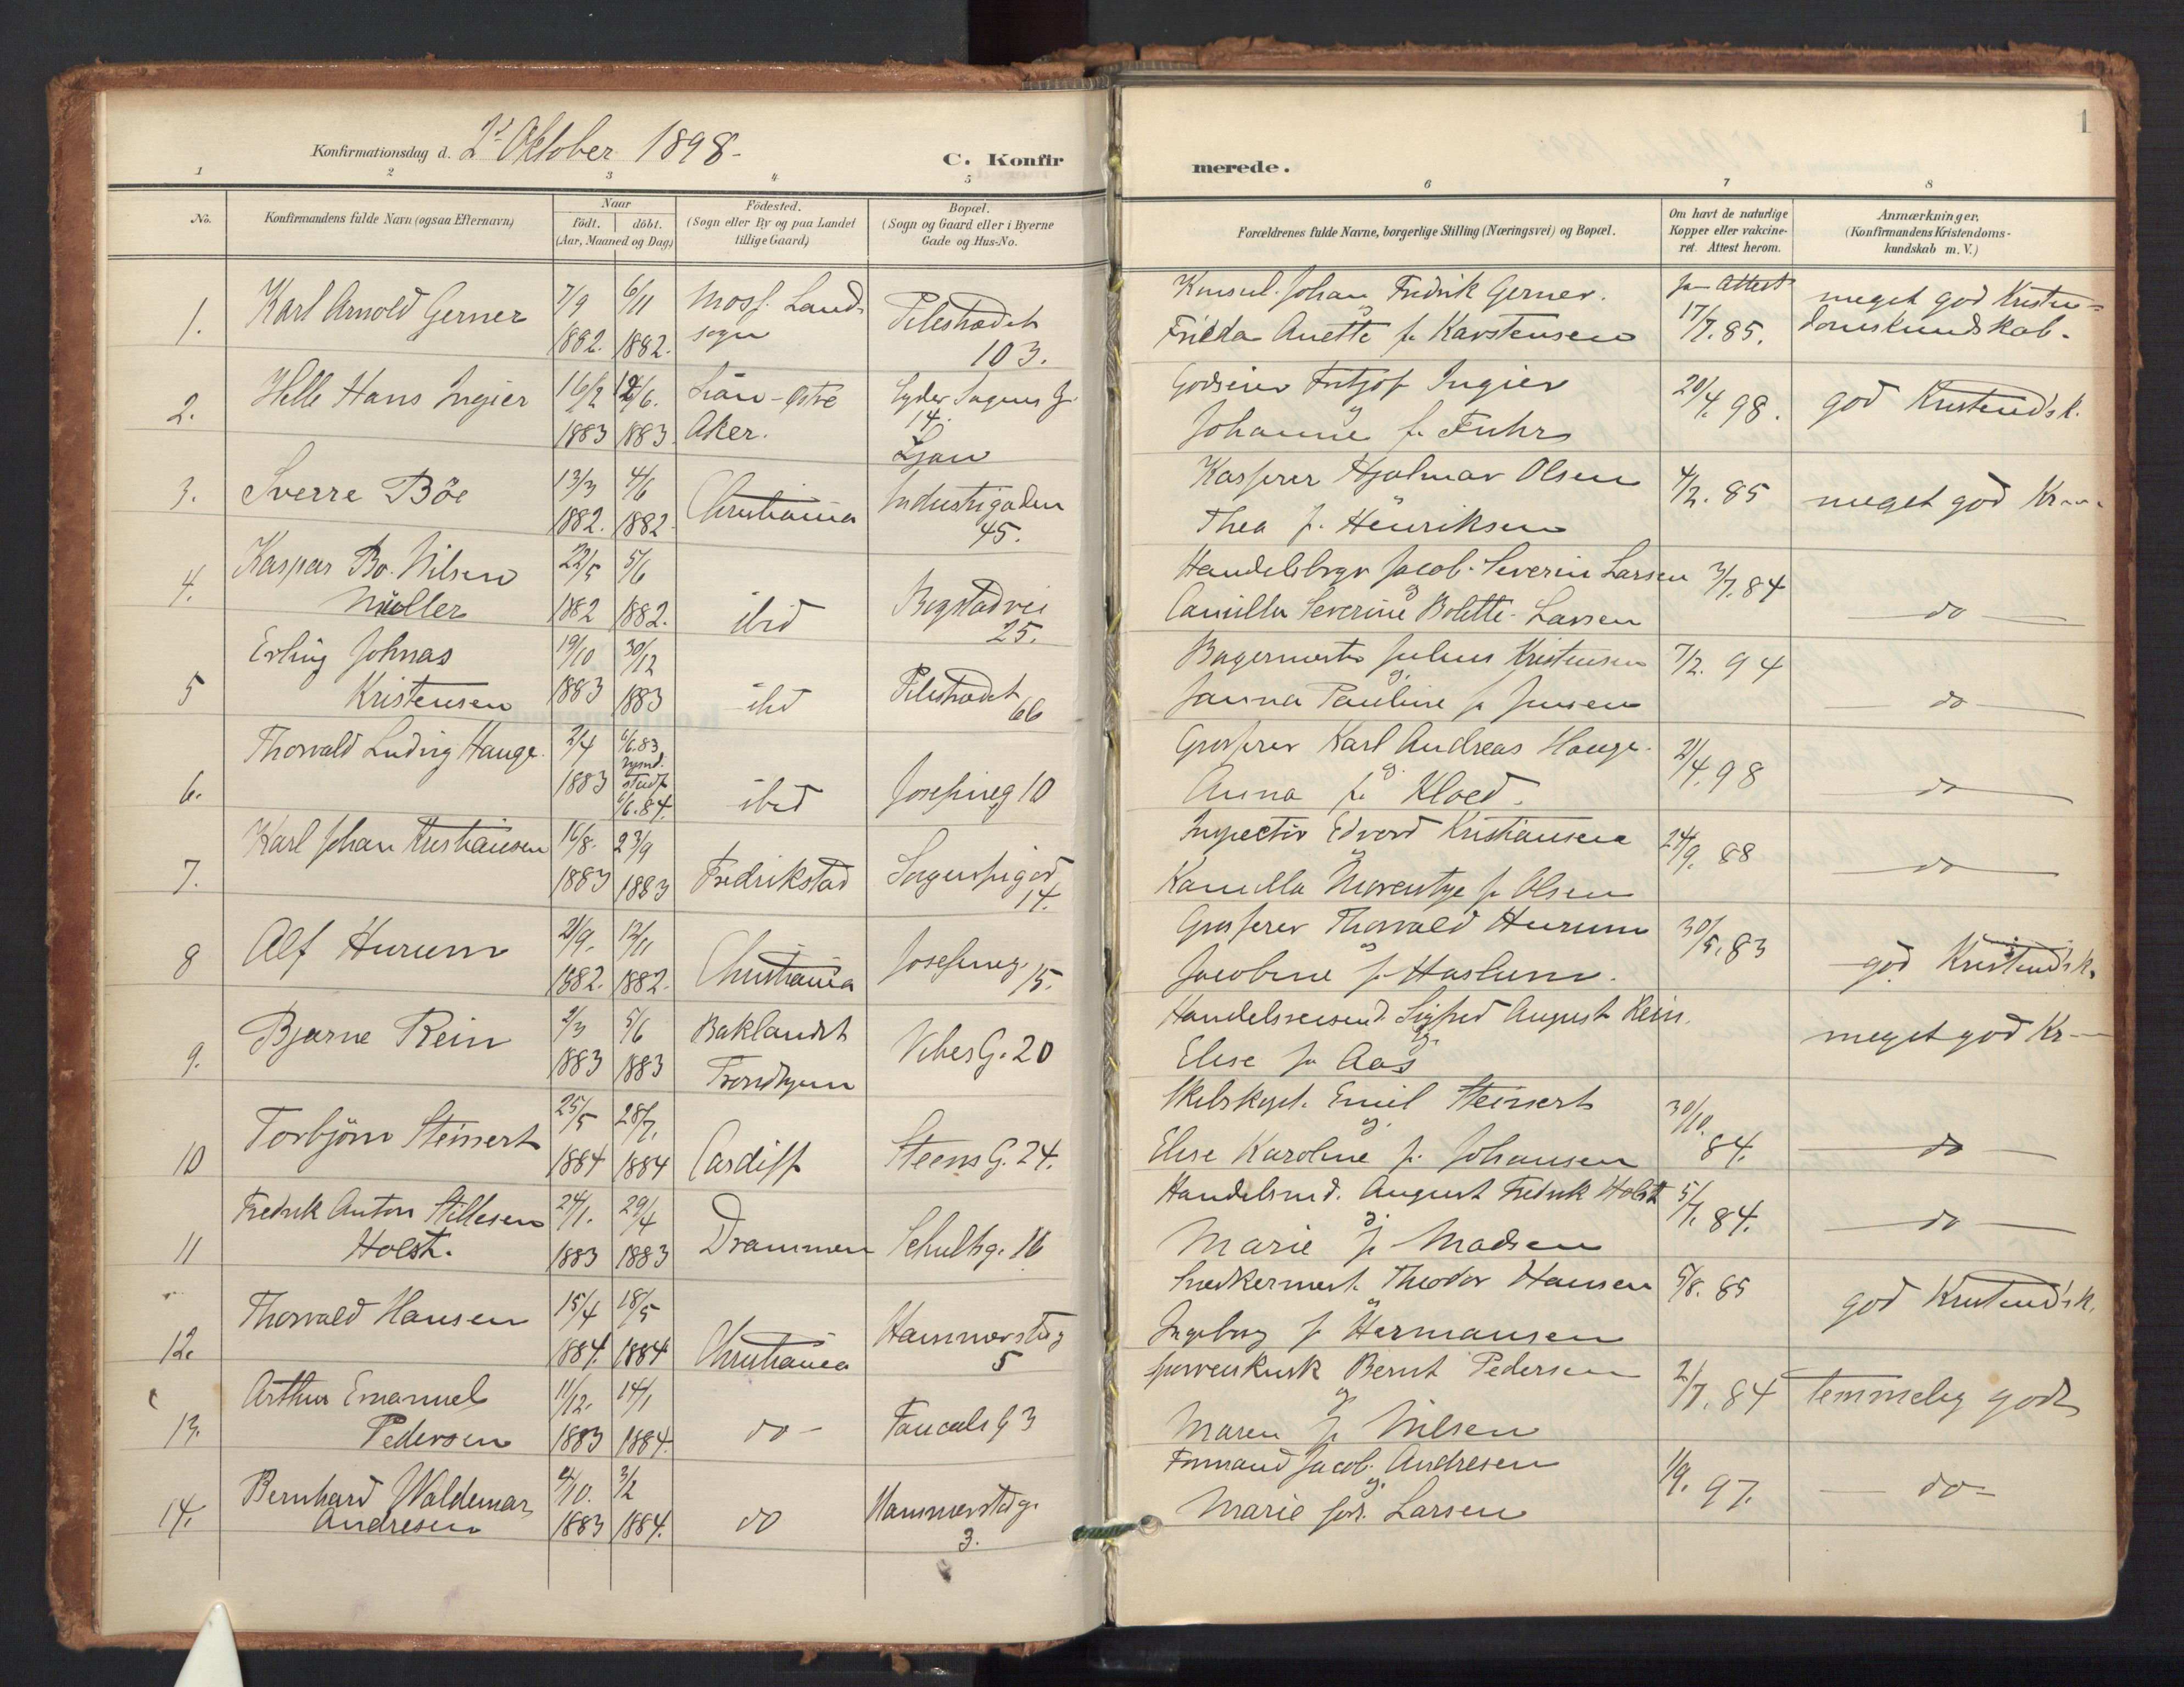 Konfirmationsdag d. 2 Oktober 1898.
C. Konfir
merede.
1
1 2 3 4 5 6 7 8
No.
Konfirmandens fulde Navn (ogsaa Efternavn)
Naar
födt. döbt.
(Aar, Maaned og Dag)
Födested.
(Sogn eller By og paa Landet
tillige Gaard)
Bopæl.
(Sogn og Gaard eller i Byerne
Gade og Hus-No.
Forældrenes fulde Navne, borgerlige Stilling (Næringsvei) og Bopæl.
Om havt de naturlige
Kopper eller vakcine-
ret. Attest herom.
Anmærkninger.
(Konfirmandens Kristendoms-
kundskab m. V.)
1. Karl Arnold Gerner 7/9 1882. 6/11 1882. Moss. Land-
sogn Pilestrædet
103.
Konsul Johan Fredrik Gerner.
Anette f. Karstensen
Attest
17/7.85.
meget god Kristen-
domskundskab.
2. Helle Hans Ingier 16/2 1883 1883. Lian - Østre
Aker. Lyder Sagens G.
14.
Ljan
Godseier Fritjof Ingier
og
Johanne f. Fuhr
20/4.98. god Kristend'sk.
3. Sverre Böe 13/3 1882. 4/6 1882. Christiania Industrigaden
45.
Kasserer Hjalmar Olsen
Thea f. Henriksen
4/2.85 meget god Kr
4. Kaspar Bo. Nilsen
Müller 22/5 1882 5/6 1882. ibid Bogstadvei
25.
Jacob Severin Larsen
og
Camilla Severine Bolette Larsen
3/7.84 do
5 Erling Johnas
Kristensen 19/10 1883 30/12 1883 ibid Pilestrædet
66
Bagermester Julius Kristensen
og
Janna Pauline f. Jensen
7/2.94 do
6. Thorvald Ludvig Hauge. 2/4 1883 6/6.83
stadf
6/6.84. ibid Josefineg 10
Grosserer Karl Andreas Hauge.
og
Anna f. Kloed.
21/4.98 do
7. Karl Johan Kristiansen 16/8. 1883 23/9 1883 Fredrikstad Sorgenfrigad
14.
Edvard Kristiansen
og
Kamilla f. Olsen
24/9.88 do
8 Alf Hurum 21/9. 1882. 12/11 1882. Christiania Josefineg.
15.
Grosserer Thorvald Hurum
og
Jacobine f. Haslum.
30/5.83 god Kristend'sk.
9. Bjarne Rein 2/3 1883 5/6 1883 Baklandet
Trondhjem Vibes G. 20
Handelsreisend. Sigfred August Rein.
og
Elise f. Aas
meget god Kr
10 Torbjörn Steinert 25/5 1884 28/7. 1884 Cardiff Steens G. 24.
Skibskapt. Emil Steinert
og
Elise Karoline f. Johansen
30/10.
84. do
11 Fredrik Anton Stillesen
Holst. 24/1. 1883 29/4 1883 Drammen Schultzg. 16
August Fredrik Holst
og
Marie f. Madsen
5/7.84. do
12. Thorvald Hansen 15/4 1884. 18/5 1884 Christiania Hammerstbg
5
Snedkermest. Theodor Hansen
og
Ingeborg f. Hermansen
5/8.85 god Kristend'sk.
13. Arthur Emanuel
Pedersen 11/12. 1883 14/1 1884. do - Fauchalds G 3
Sporveiskusk Bernt Pedersen
og
Maren f. Nilsen
2/7.84 temmelig godt
14. Bernhard Waldemar
Andresen 1883 3/2 1884. do Hammerstadg.
3.
Formand Jacob Andresen
og
Marie föd. Larsen
1/9.97. do -